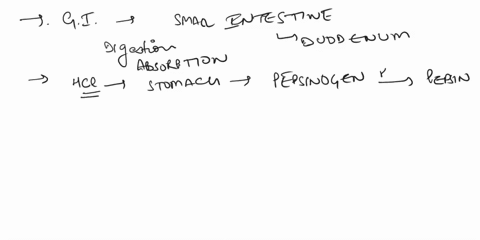 →. G.I. → SMAll INTESTINE
↳ DUODENUM
Digestion
ABSORPTION
→ HCl → STOMACH → PEPSINOGEN → PEPSIN